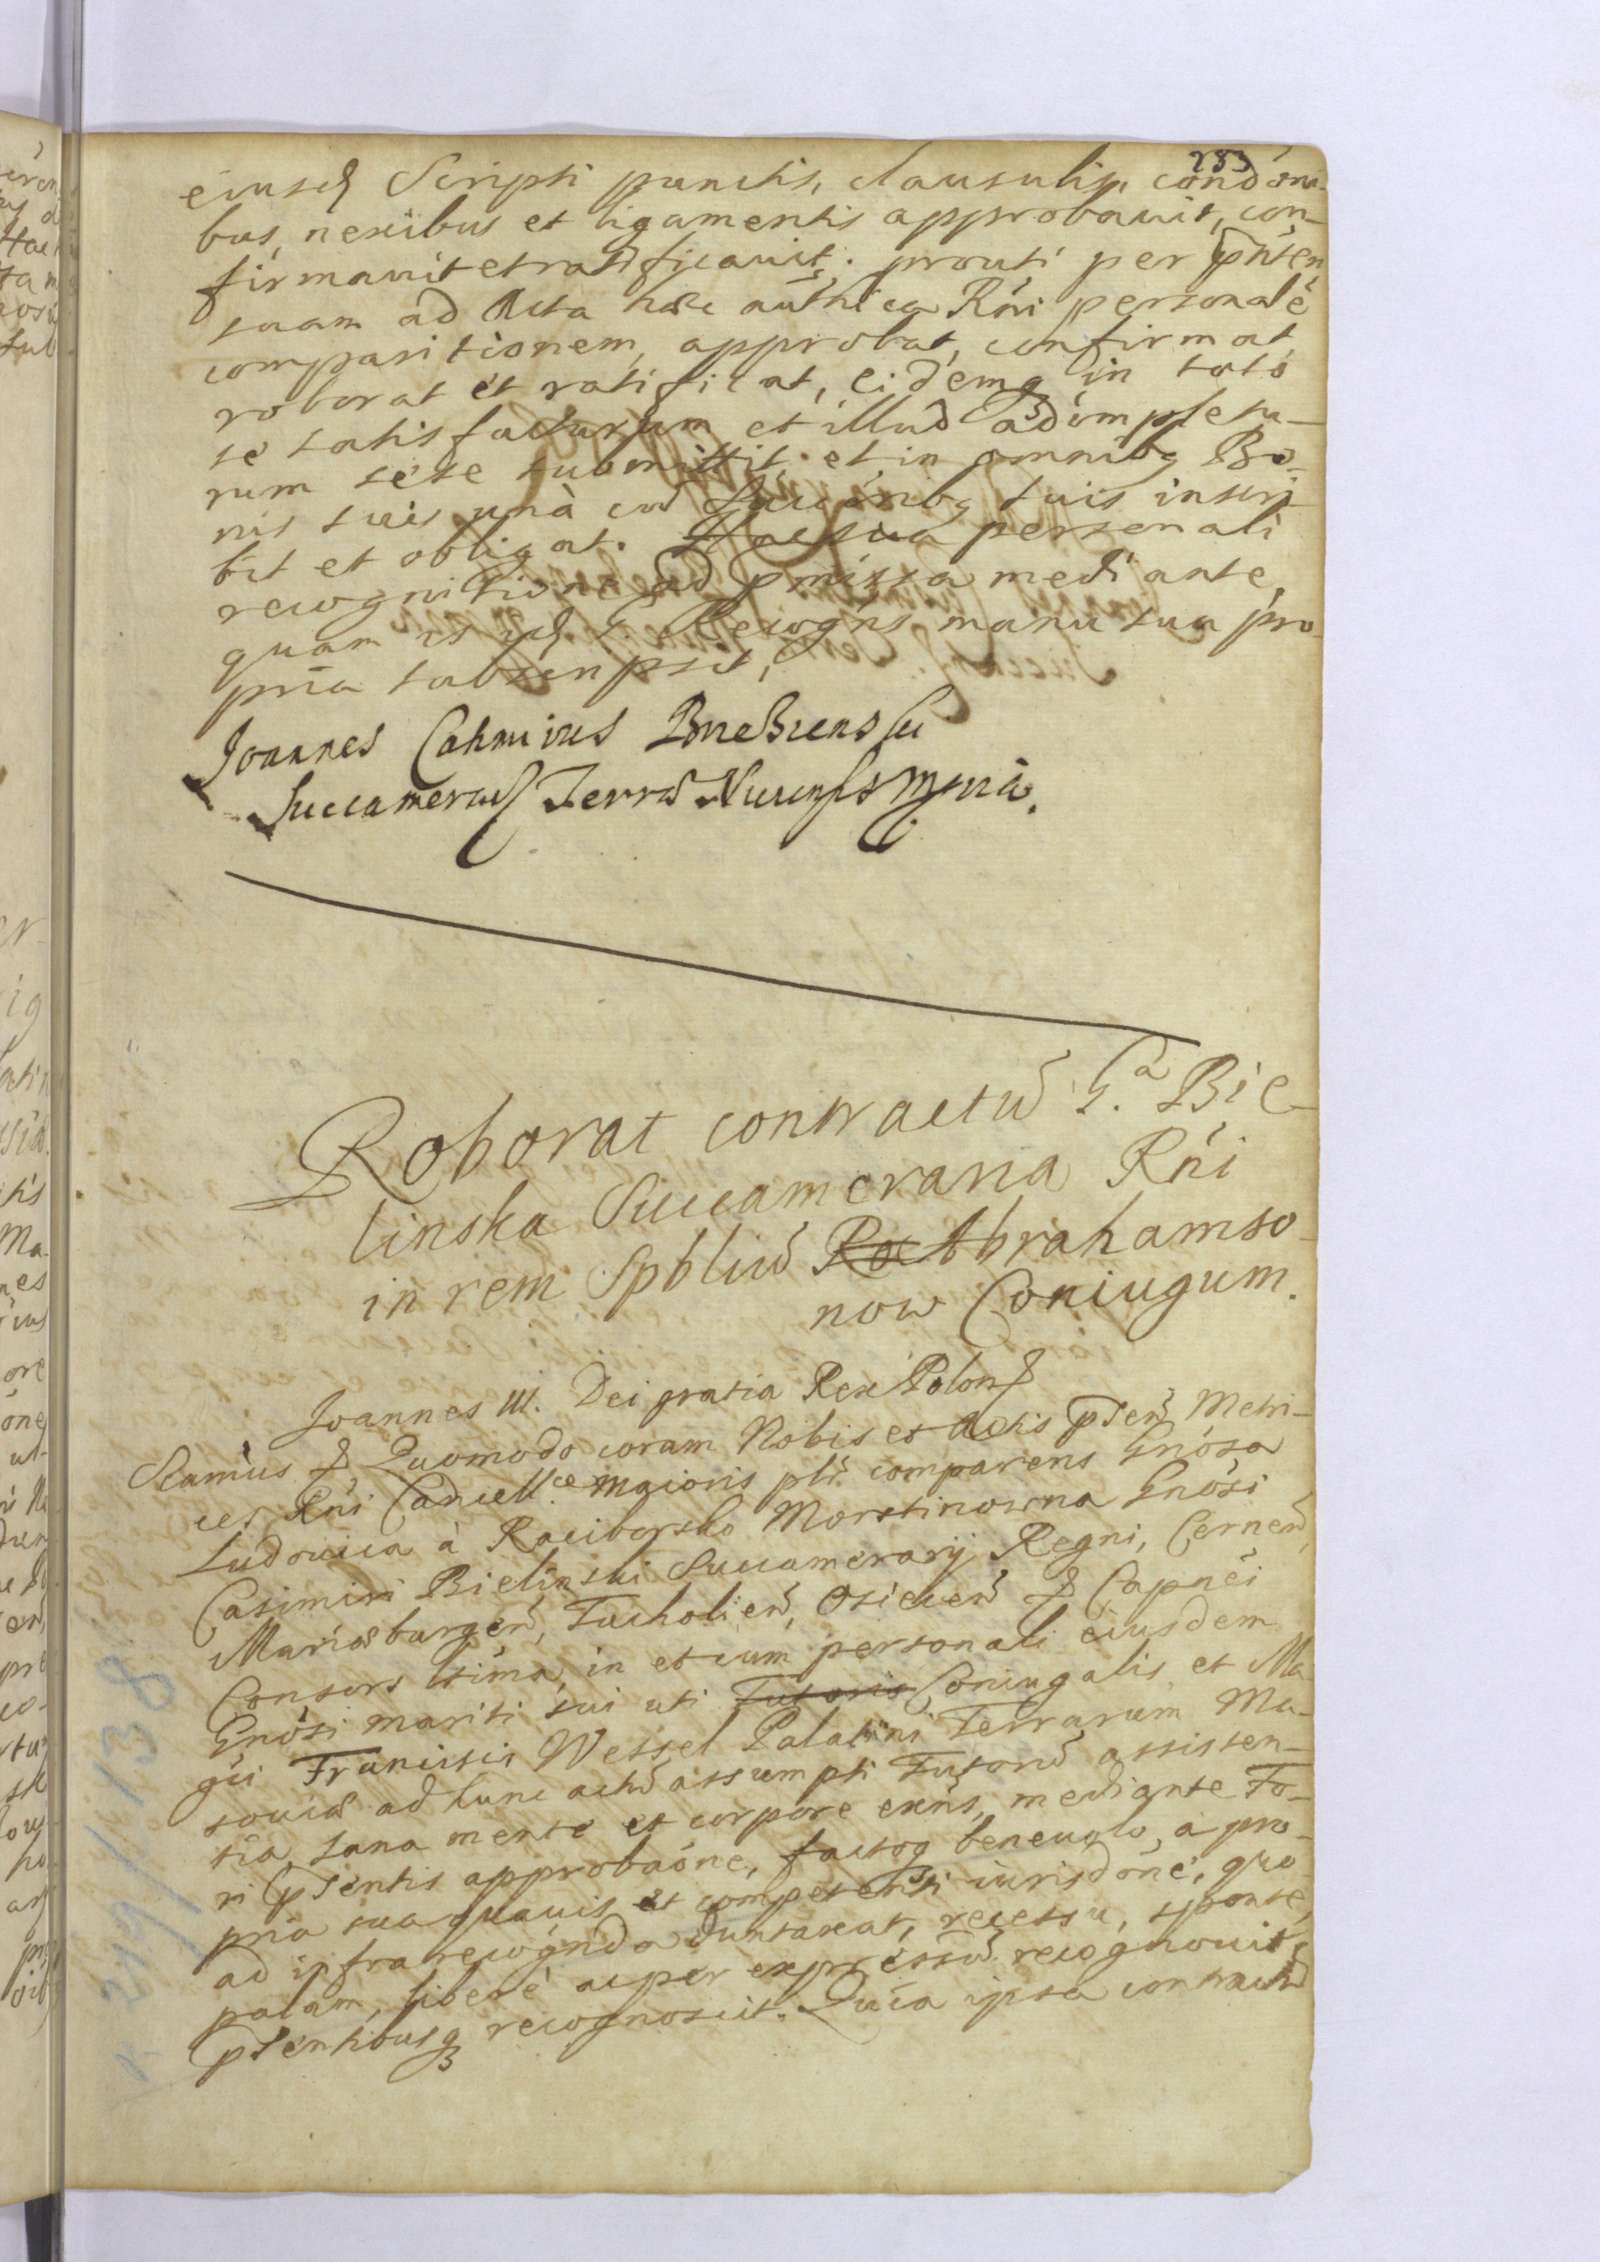 283
eiusd Scripti punctis, clausulis, condóni-
bus, nexibus et ligamentis approbavit, con-
firmavit et ratificavit: prouti per pńtem
suam ad Acta haec aúthca Rńi personalé
comparitionem, approbat, confirmat,
roborat et ratificat, eidemq in toto
se satisfacturum et illud adimpletu-
rum sese submittit: et in omnibq Bo-
nis suis unà cũ Succóribq suis inscri-
bit et obligat. Hac sua personali
recognitione ad pmissa mediante,
quam is id G. Recogńs manu sua pro-
pria subscripsit,
Joannes Casimirus
Succamerarius Terrae Nurensis mpria.
Roborat contractũ G.a Bie-
linska Succameraria Rńi
in rem Spbliũ Abrahamso-
now Coniugum.
Joannes III. Dei gratia Rex Polon
Scamus Quomodo coram Nobis et Actis pńseñ Metri-
ces Rńi Cancell.ce Maioris plr comparens Gńósa
Ludovica à Raciborsko Morstinowna Gńósi
Casimiri Bielinski Succamerarij Regni, Cerneñ,
Mariaeburgeñ, Tucholieñ, Osieceñ Capnéi
Consors ltima, in et cum personali eiusdem
Gńósi mariti sui uti Tutoris Coniugalis et Ma-
gci Francisci Wessel Palatini Terrarum Ma-
soviae ad hunc actũ assumpti Tutorũ assisten-
tia, sana mente et corpore exńs, mediante Fo-
ri pńsentis approbaóne, factoq benevolo, a pro-
pria sua quavis et competenti iurisdóne, quo
ad infra recógnda duntaxat, recessu, sponte,
palam, liberè ac per expressũ recognovit
pńsentibusq recognoscit. Quia ipsa contractũ